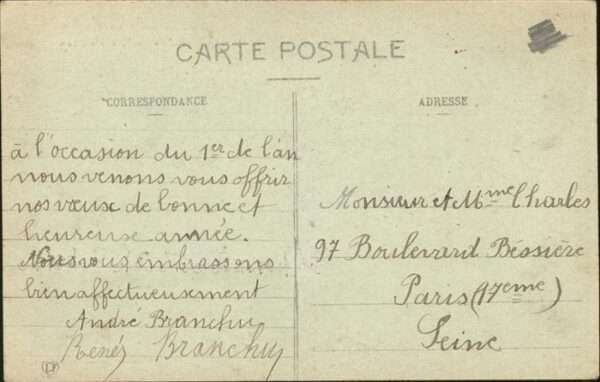 CARTE POSTALE
CORRESPONDANCE
à l'occasion du 1er de l'an
nous venons vous offrir
nos vœux de bonne et
heureuse année.
Nous vous embrassons
bien affectueusement
André Branchu
René Branchu
ADRESSE
Monsieur et Mme Charles
97 Boulevard Bessière
Paris (17eme)
Seine